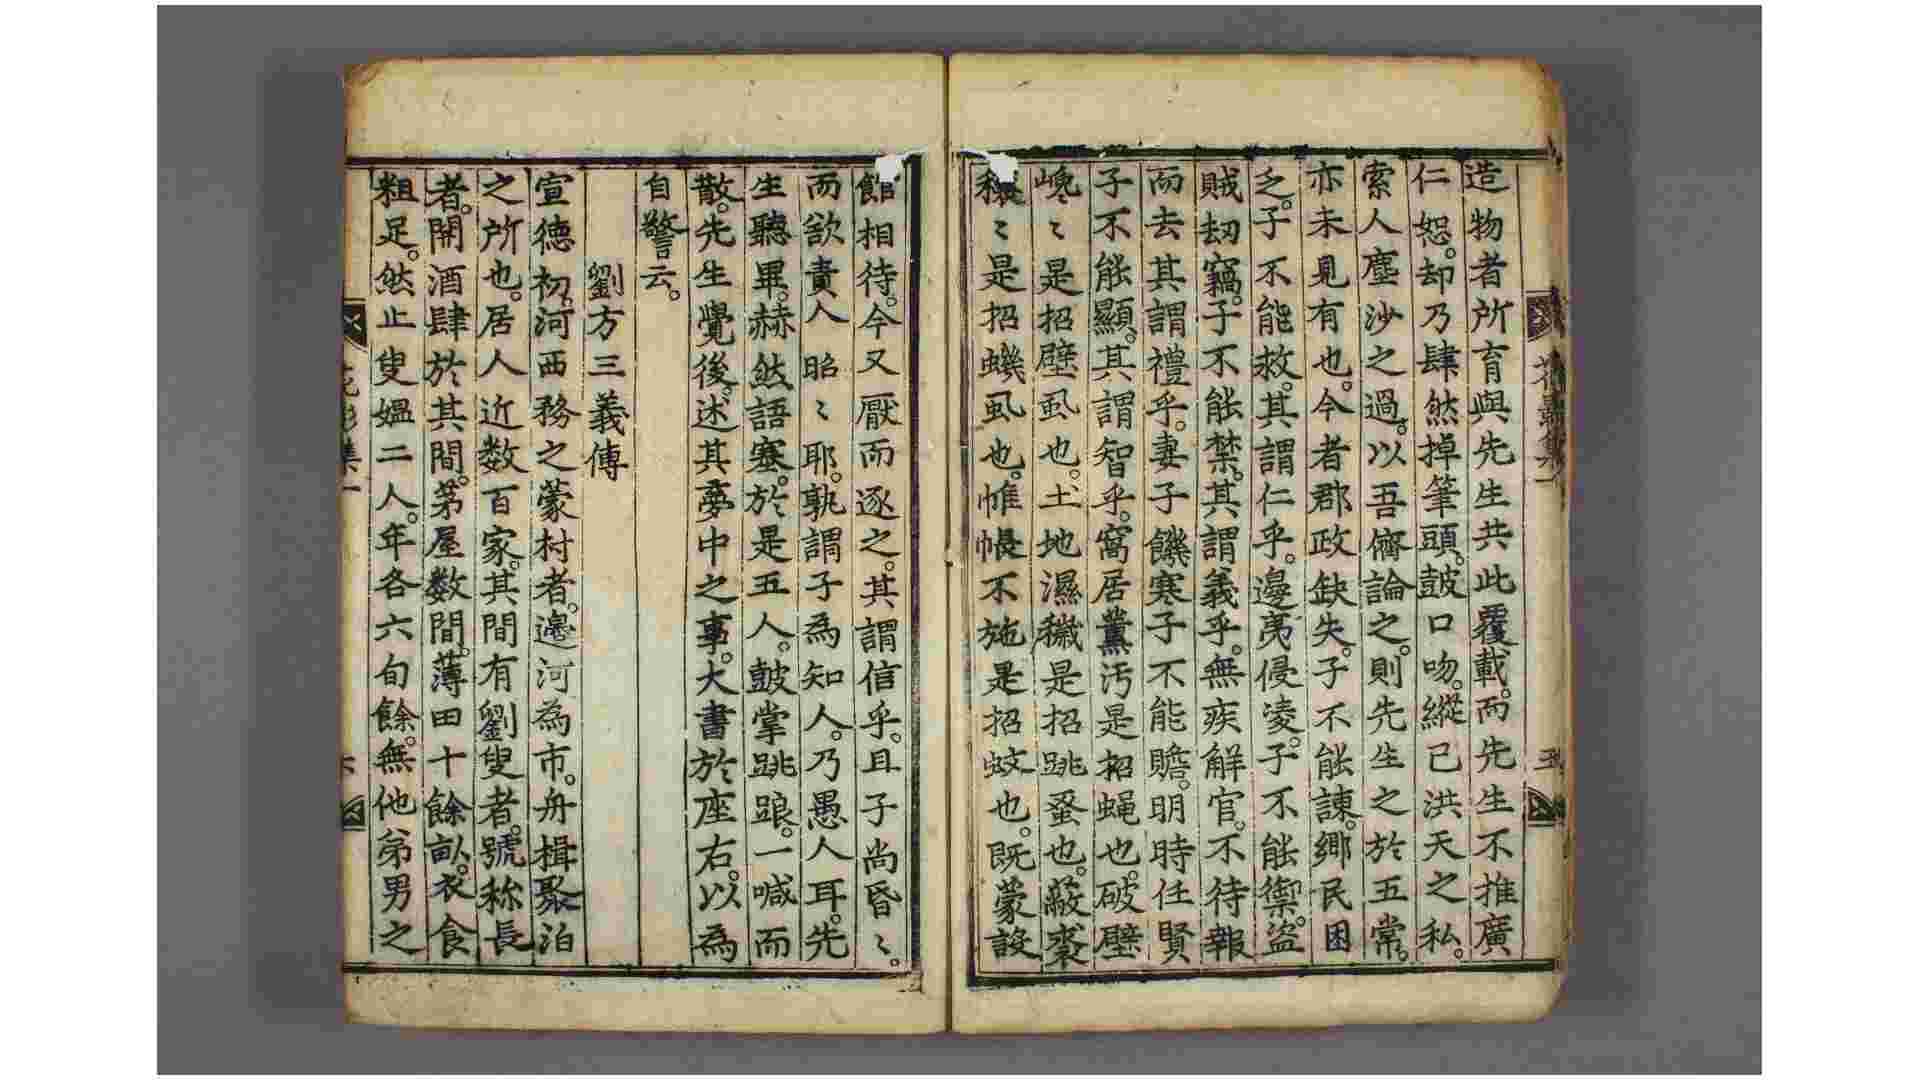 造物者所育與先生共此覆載。而先生不推廣
仁恕。却乃肆然掉筆頭。鼓口吻。縱己洪天之私。
索人塵沙之過。以吾儕論之。則先生之於五常。
亦未見有也。今者郡政缺失。子不能諫。鄉民困
乏。子不能救。其謂仁乎。邊夷侵凌。子不能禦。盜
賊劫竊。子不能禁。其謂義乎。無疾解官。不待報
而去其謂禮乎。妻子饑寒子不能贍。明時任賢
子不能顯。其謂智乎。窩居薰汚是招蝇也。破壁
巉〻是招壁虱也。土地濕穢是招跳蚤也。蔽裘
穰〻是招蟣虱也。帷帳不施是招蚊也。既蒙設
館相待。今又厭而逐之。其謂信乎。且子尚昏〻。
而欲責人昭〻耶。孰謂子為知人。乃愚人耳。先
生聽畢。赫然語塞。於是五人。鼓掌跳踉。一喊而
散。先生覺後。述其夢中之事。大書於座右。以為
自警云。
劉方三義傳
宣德初。河西務之蒙村者。邊河為市。舟楫聚泊
之所也。居人近数百家。其間有劉叟者。號称長
者。開酒肆於其間。茅屋数間。薄田十餘畝。衣食
粗足。然止叟媼二人。年各六旬餘。無他弟男之